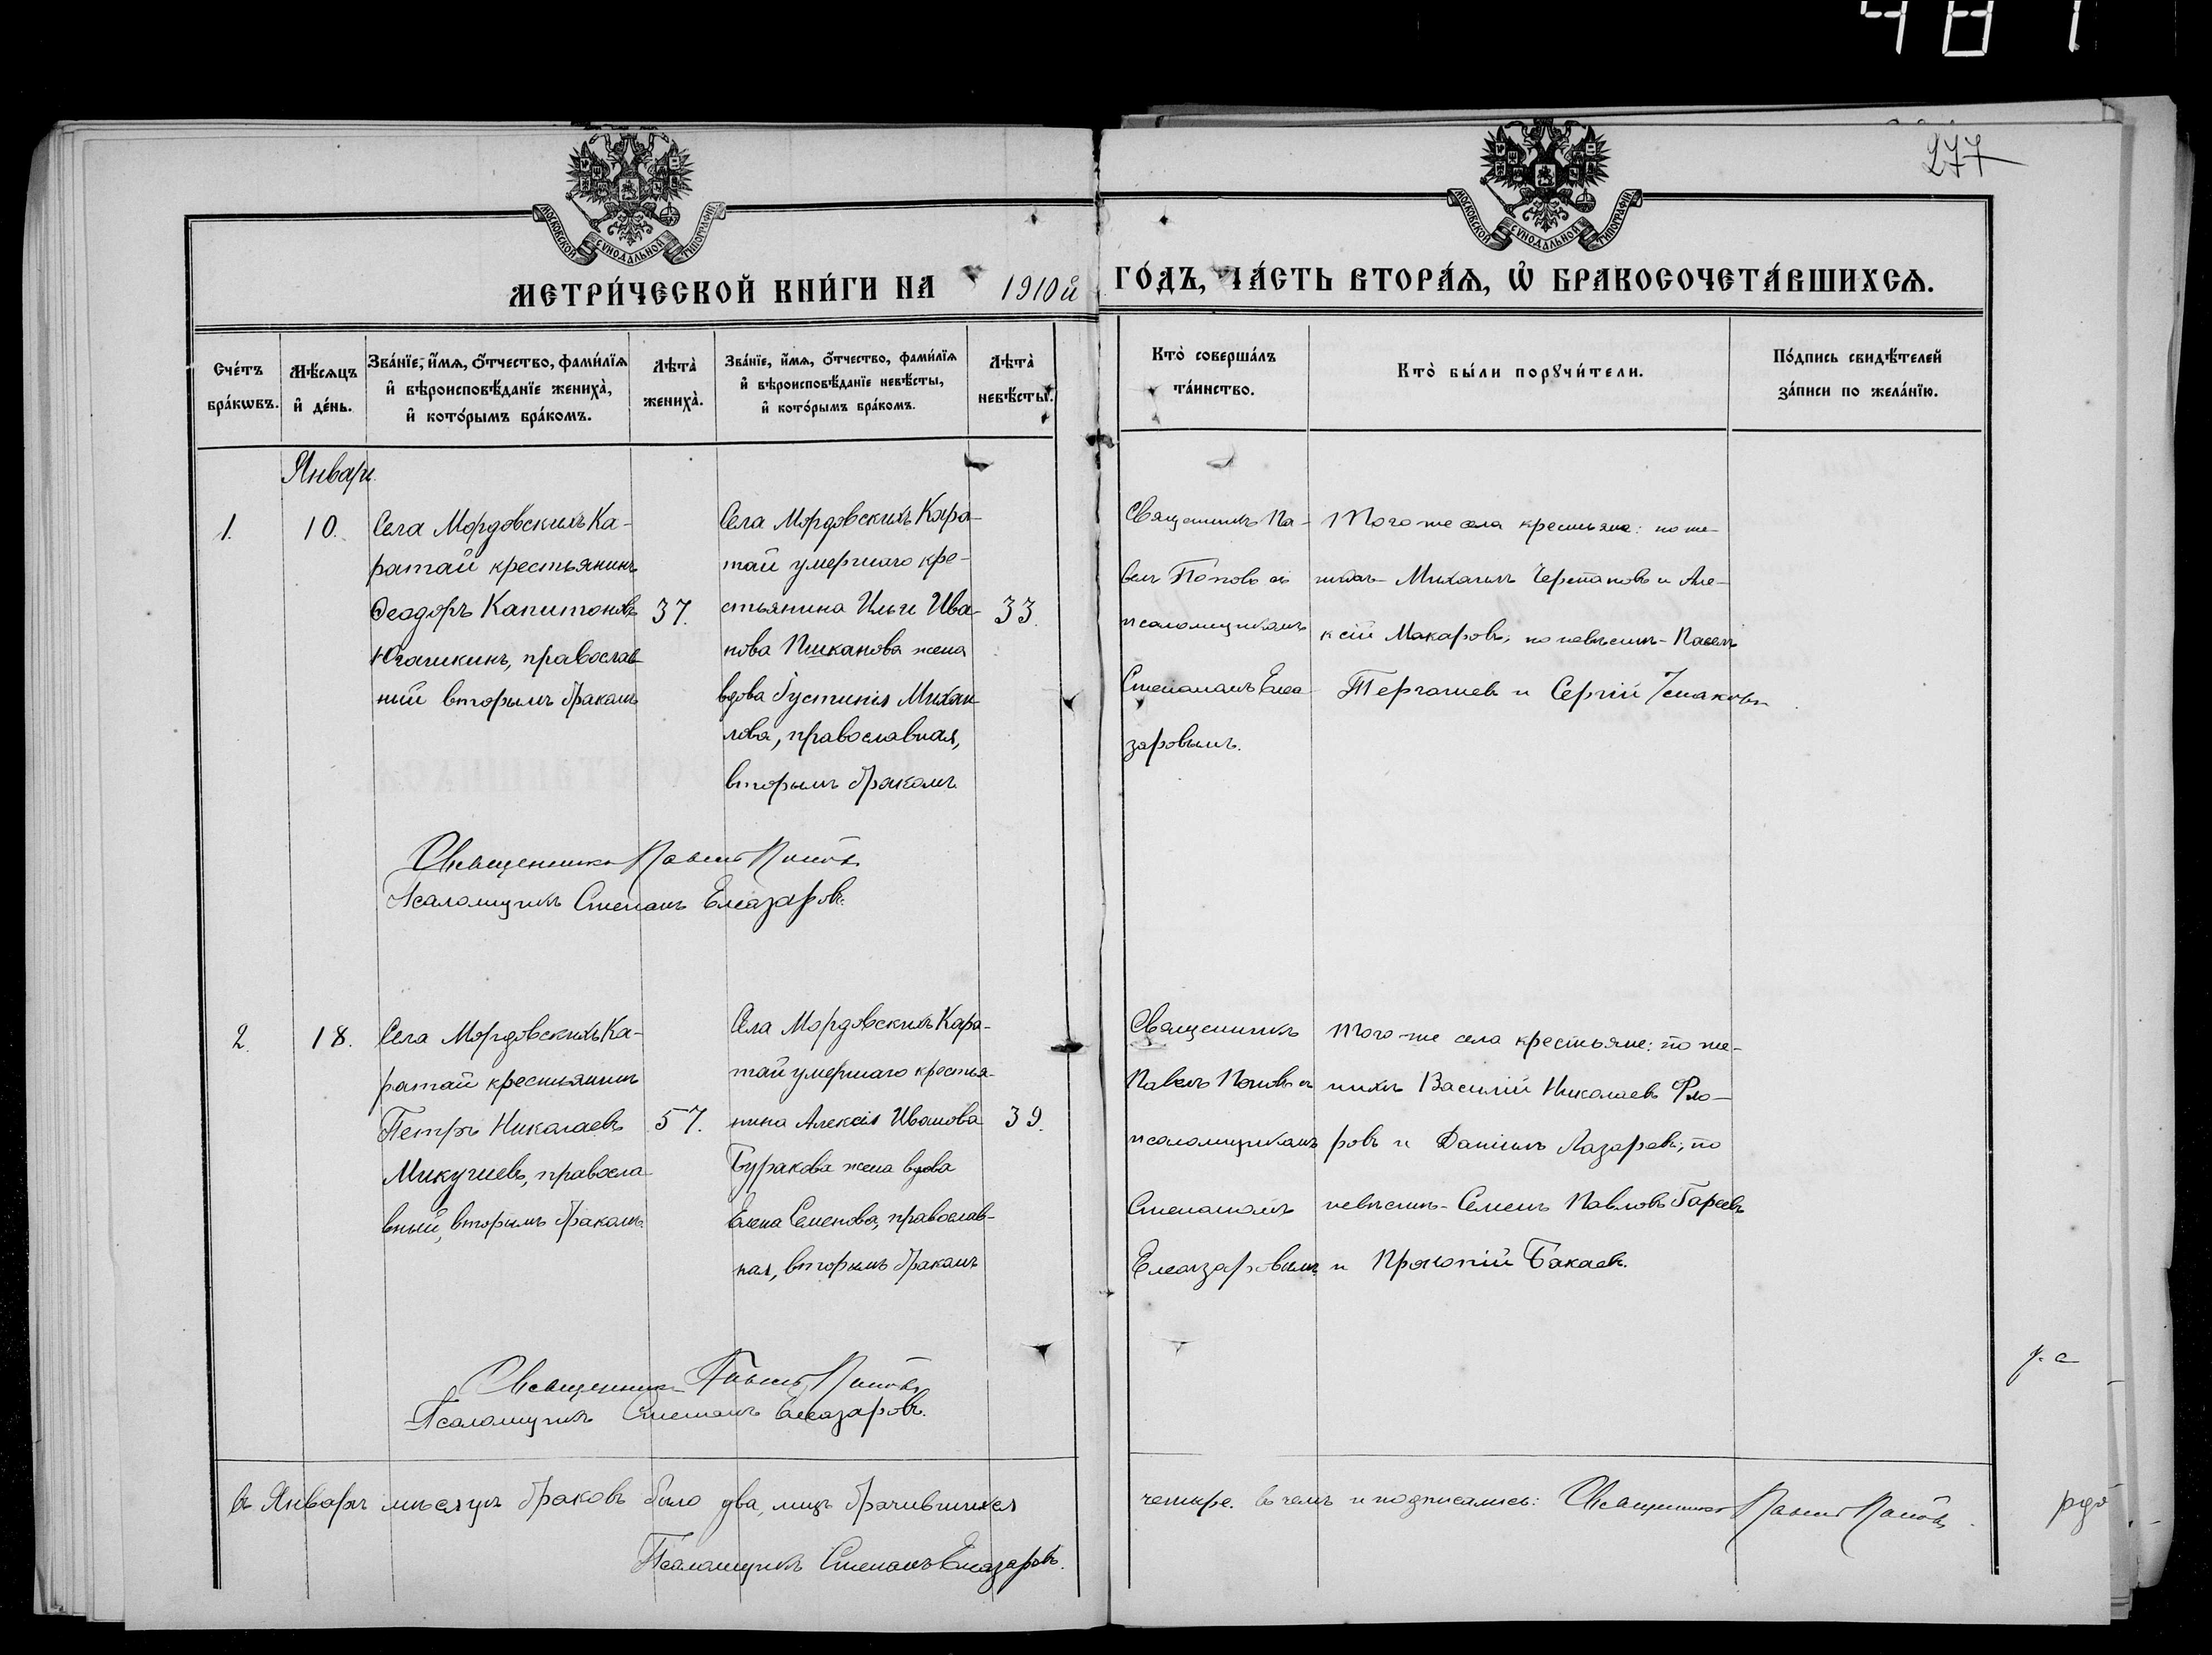 481
277
МОСКОВСКОЙ СѴНОДАЛЬНОЙ ТИПОГРАФІИ.
МОСКОВСКОЙ СѴНОДАЛЬНОЙ ТИПОГРАФІИ.
МЕТРИ́ЧЕСКОЙ КНИ́ГИ НА 1910й ГО́ДЪ, ЧА́СТЬ ВТОРА́Ѧ, Ѿ БРАКОСОЧЕТА́ВШИХСѦ.
Сче́тъ
бра́кѡвъ.
Мѣ́сѧцъ
и҆ де́нь.
Зва́нїе, и҆́мѧ, ѻ҆́тчество, фами́лїѧ
и҆ вѣроисповѣ́данїе жениха̀,
и҆ кото́рымъ бра́комъ.
Лѣта̀
жениха̀.
Зва́нїе, и҆́мѧ, ѻ҆́тчество, фами́лїѧ
и҆ вѣроисповѣ́данїе невѣ́сты,
и҆ кото́рымъ бра́комъ.
Лѣта̀
невѣ́сты.
Кто̀ соверша́лъ
та́инство.
Кто̀ бы́ли порꙋчи́тели.
По́дпись свидѣ́телей
за́писи по жела́нїю.
Январь
1.
10.
Села Мордовскихъ Ка-
ратай крестьянинъ
Ѳеодоръ Капитоновъ
Югашкинъ, православ
ный вторымъ бракомъ
37.
Села Мордовскихъ Кара-
тай умершаго кре-
стьянина Ильи Ива-
нова Пиканова жена
вдова Іустинія Михаи
лова, православная,
вторымъ бракомъ
33.
Священникъ Па-
велъ Поповъ съ
псаломщикомъ
Степаномъ Елеа
заровымъ.
Того-же села крестьяне: по же-
нихѣ- Михаилъ Черпаковъ и Але-
ксій Макаровъ; по невѣстѣ- Павелъ
Тергачевъ и Сергій Исаковъ
Священникъ Павелъ Поповъ
Псаломщикъ Степанъ Елеазаровъ
2.
18.
Села Мордовскихъ Ка-
ратай крестьянинъ
Петръ Николаевъ
Микучевъ, правосла
вный, вторымъ бракомъ
57.
Села Мордовскихъ Кара-
тай умершаго крестья-
нина Алексія Иванова
Буракова жена вдова
Елена Семенова, православ-
ная, вторымъ бракомъ
39.
Священникъ
Павелъ Поповъ съ
псаломщикомъ
Степаномъ
Елеазаровымъ
Того-же села крестьяне: по же-
нихѣ Василій Николаевъ Фло-
ровъ и Даніилъ Лазаревъ; по
невѣстѣ- Семенъ Павловъ Гареевъ
и Прокопій Бакаевъ.
Священникъ Павелъ Поповъ
Псаломщикъ Степанъ Елеазаровъ.
въ Январѣ мѣсяцѣ браковъ было два, лицъ брачившихся
четыре. въ чемъ и подписались: Священникъ Павелъ Поповъ
Псаломщикъ Степанъ Елеазаровъ.